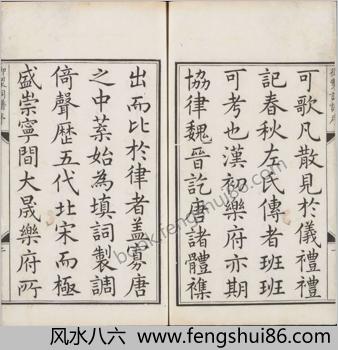 可歌凡散見於儀禮禮
記春秋左氏傳者班班
可考也漢初樂府亦期
協律魏晉訖唐諸體襍
出而比於律者蓋寡唐
之中葉始為填詞製調
倚聲歷五代北宋而極
盛崇寧間大晟樂府所
book.fengshui86.com
风水八六 www.fengshui86.com